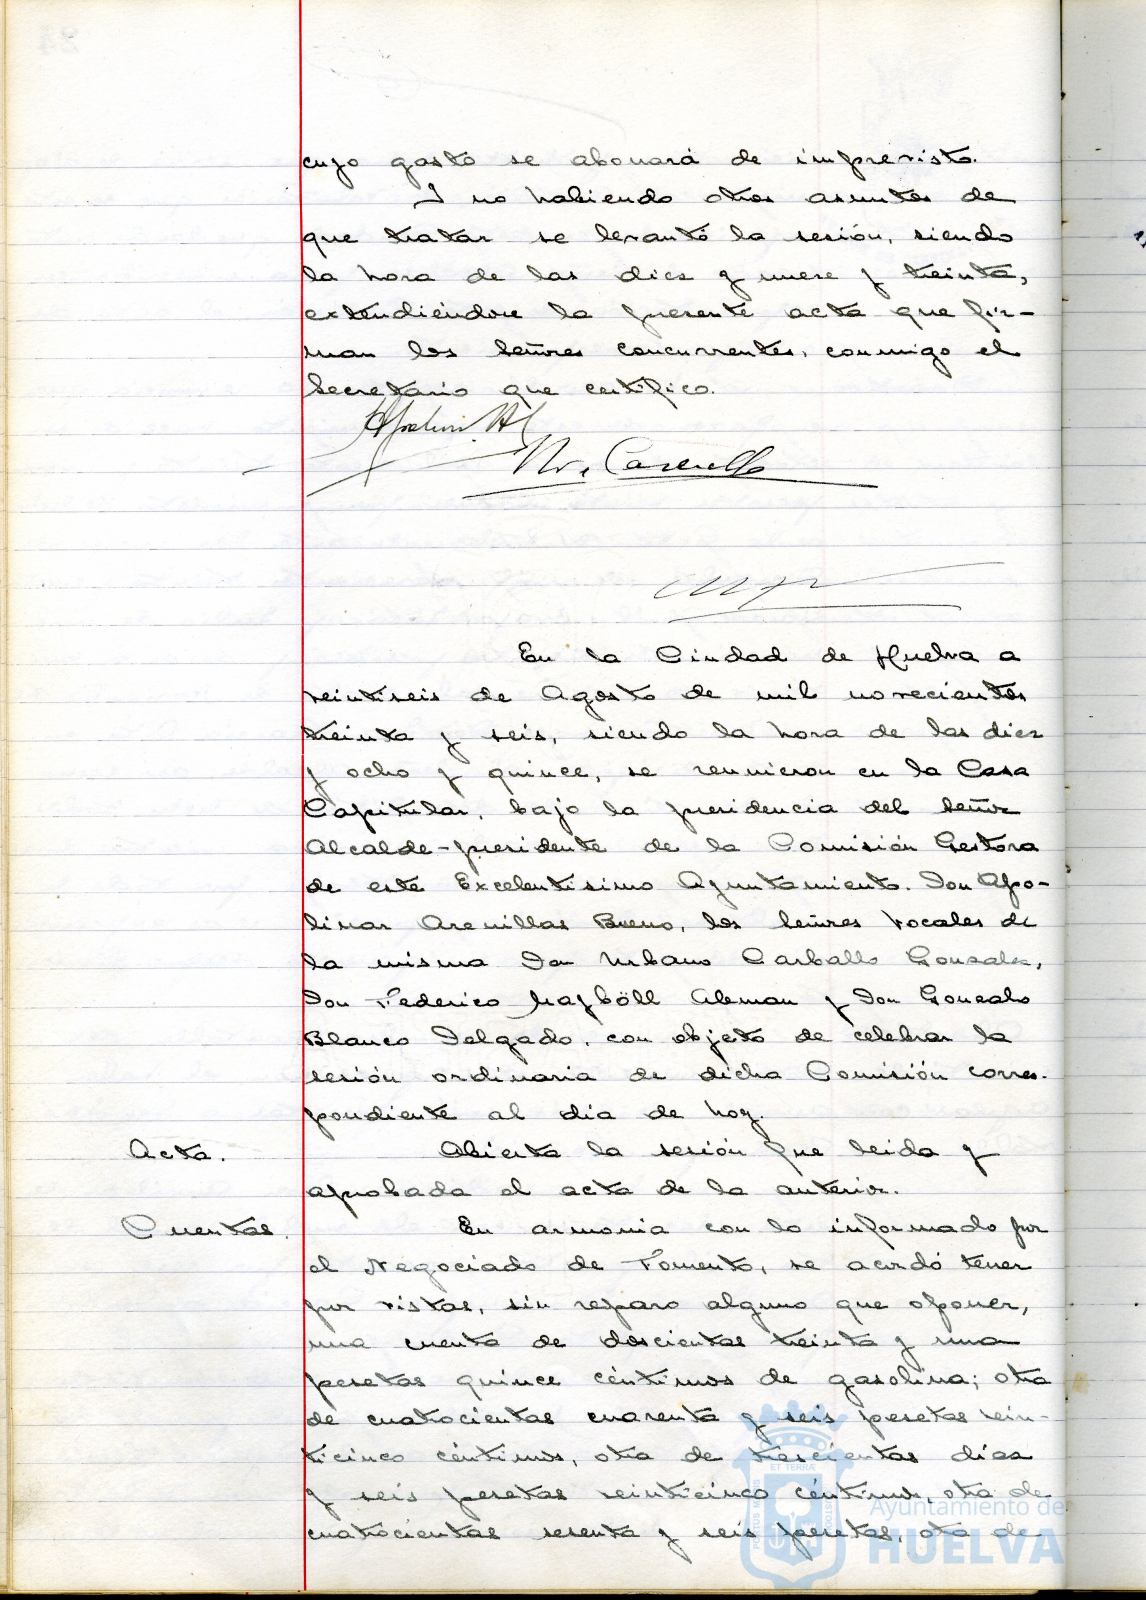 cuyo gasto se abonará de imprevisto.
Y no habiendo otros asuntos de
que tratar se levantó la sesión, siendo
la hora de las diez y nueve y treinta,
extendiéndose la presente acta que fir-
man los Señores concurrentes, conmigo el
Secretario que certifico.
En la Ciudad de Huelva a
veintiseis de Agosto de mil novecientos
treinta y seis, siendo la hora de las diez
y ocho y quince, se reunieron en la Casa
Capitular, bajo la presidencia del Señor
Alcalde-presidente de la Comisión Gestora
de este Excelentísimo Ayuntamiento. Don Apo-
linar Arenillas Bueno, los Señores vocales de
la misma Don Urbano Carballo Gonzalez,
Don Federico Maybōll Aleman y Don Gonzalo
Blanco Delgado, con objeto de celebrar la
sesión ordinaria de dicha Comisión corres-
pondiente al día de hoy.
Acta. Abierta la sesión fue leida y
aprobada el acta de la anterior.
Cuentas. En armonia con lo informado por
el Negociado de Fomento, se acordó tener
por vistas, sin reparo alguno que oponer,
una cuenta de doscientas treinta y una
pesetas quince céntimos de gasolina; otra
de cuatrocientas cuarenta y seis pesetas vein-
ticinco céntimos, otra de trescientas diez
y seis pesetas veinticinco céntimos, otra de
cuatrocientas sesenta y seis pesetas, otra de
Ayuntamiento de
HUELVA